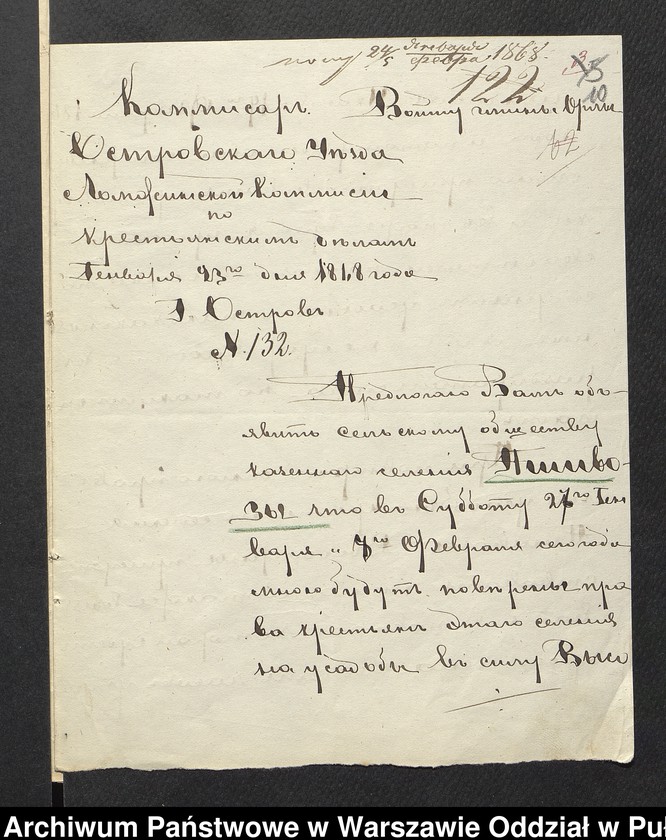 24 Генваря 1868.
5 Февра
122
10
Коммисаръ Войту гмины
Островскаго Уѣзда
Ломжинской Коммисіи
по
крестьянскимъ дѣламъ
Генваря 23го дня 1868 года
Г. Островъ
N. 132.
Предлогаю Вамъ объ-
явить сельскому обществу
казеннаго селенія
что въ Субботу 27го Ген
варя 7го Февраля сего года
мною будутъ повѣрены пра
ва крестьянъ этаго селенія
на усадьбы въ силу Высо
Archiwum Państwowe w Warszawie Oddział w Pu